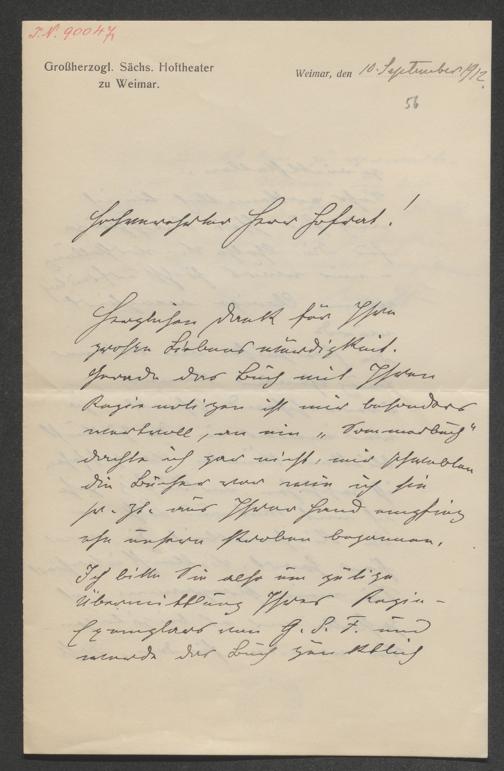 J. N. 90047
Großherzogl. Sächs. Hoftheater
zu Weimar.
Weimar, den 10. September 1912.
56
Hochverehrter Herr Hofrat!
Herzlichen Dank für Ihre
große Liebenswürdigkeit.
Gerade das Buch mit Ihren
Regienotizen ist mir besonders
wertvoll, an ein „Sommerbuch"
dachte ich gar nicht, mir schwebten
die Bücher vor wie ich sie
sr. Zt. aus Ihrer Hand empfing
ehe unsere Proben begannen.
Ich bitte Sie also um gütige
Übermittlung Ihres Regie-
Exemplars von G. S. F. und
werde das Buch pünktlich